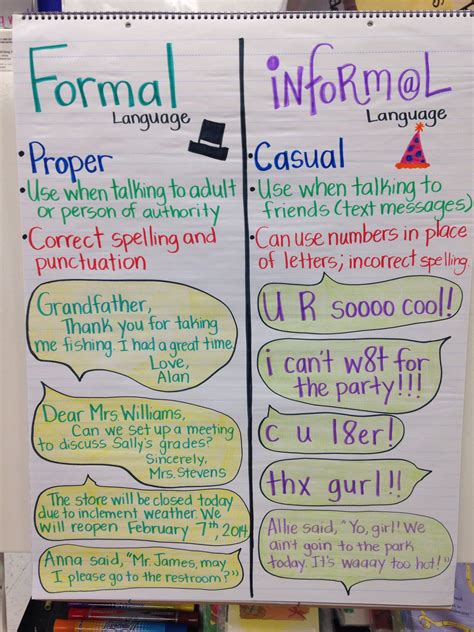 Formal
Language
• Proper
• Use when talking to adult
or person of authority
• Correct spelling and
punctuation
Grandfather,
Thank you for taking
me fishing. I had a great time.
Love,
Alan
Dear Mrs Williams,
Can we set up a meeting
to discuss Sally's grades?
Sincerely,
Mrs. Stevens
The store will be closed today
due to inclement weather. We
will reopen February 7th, 2014
Anna said, "Mr. James, may
I please go to the restroom?"
inform@L
Language
• Casual
• Use when talking to
friends (text messages)
• Can use numbers in place
of letters; incorrect spelling.
U R soooo cool!
i can't w8t for
the party!!!
c u l8er!
thx gurl!!
Allie said, "Yo, girl! We
ain't goin to the park
today. It's waaay too hot!"